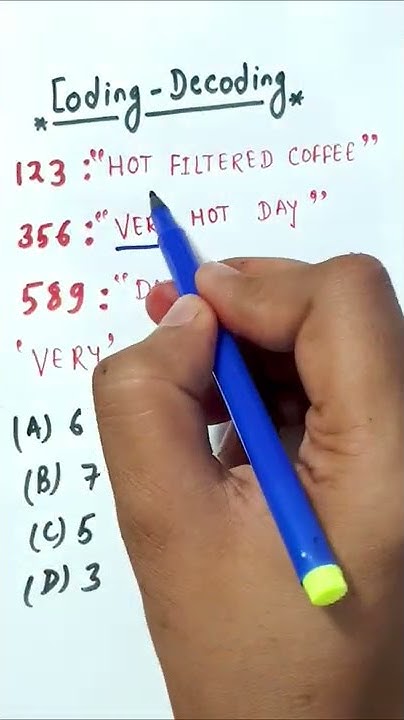 *Coding-Decoding*
123 : "HOT FILTERED COFFEE"
356 : "VERY HOT DAY"
589 : "
'VERY'
(A) 6
(B) 7
(C) 5
(D) 3